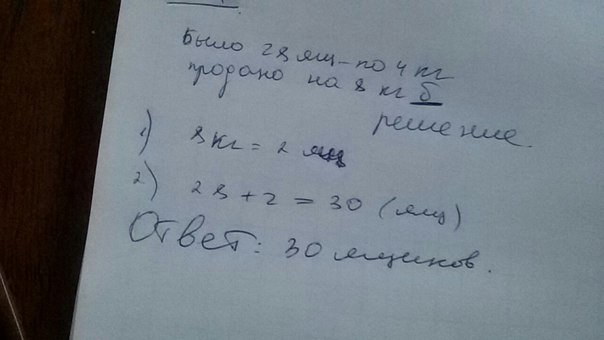 Было 28 ящ - по 4 кг
продано на 8 кг б
решение.
1) 8 кг = 2 ящ
2) 28 + 2 = 30 (ящ)
Ответ: 30 ящиков.